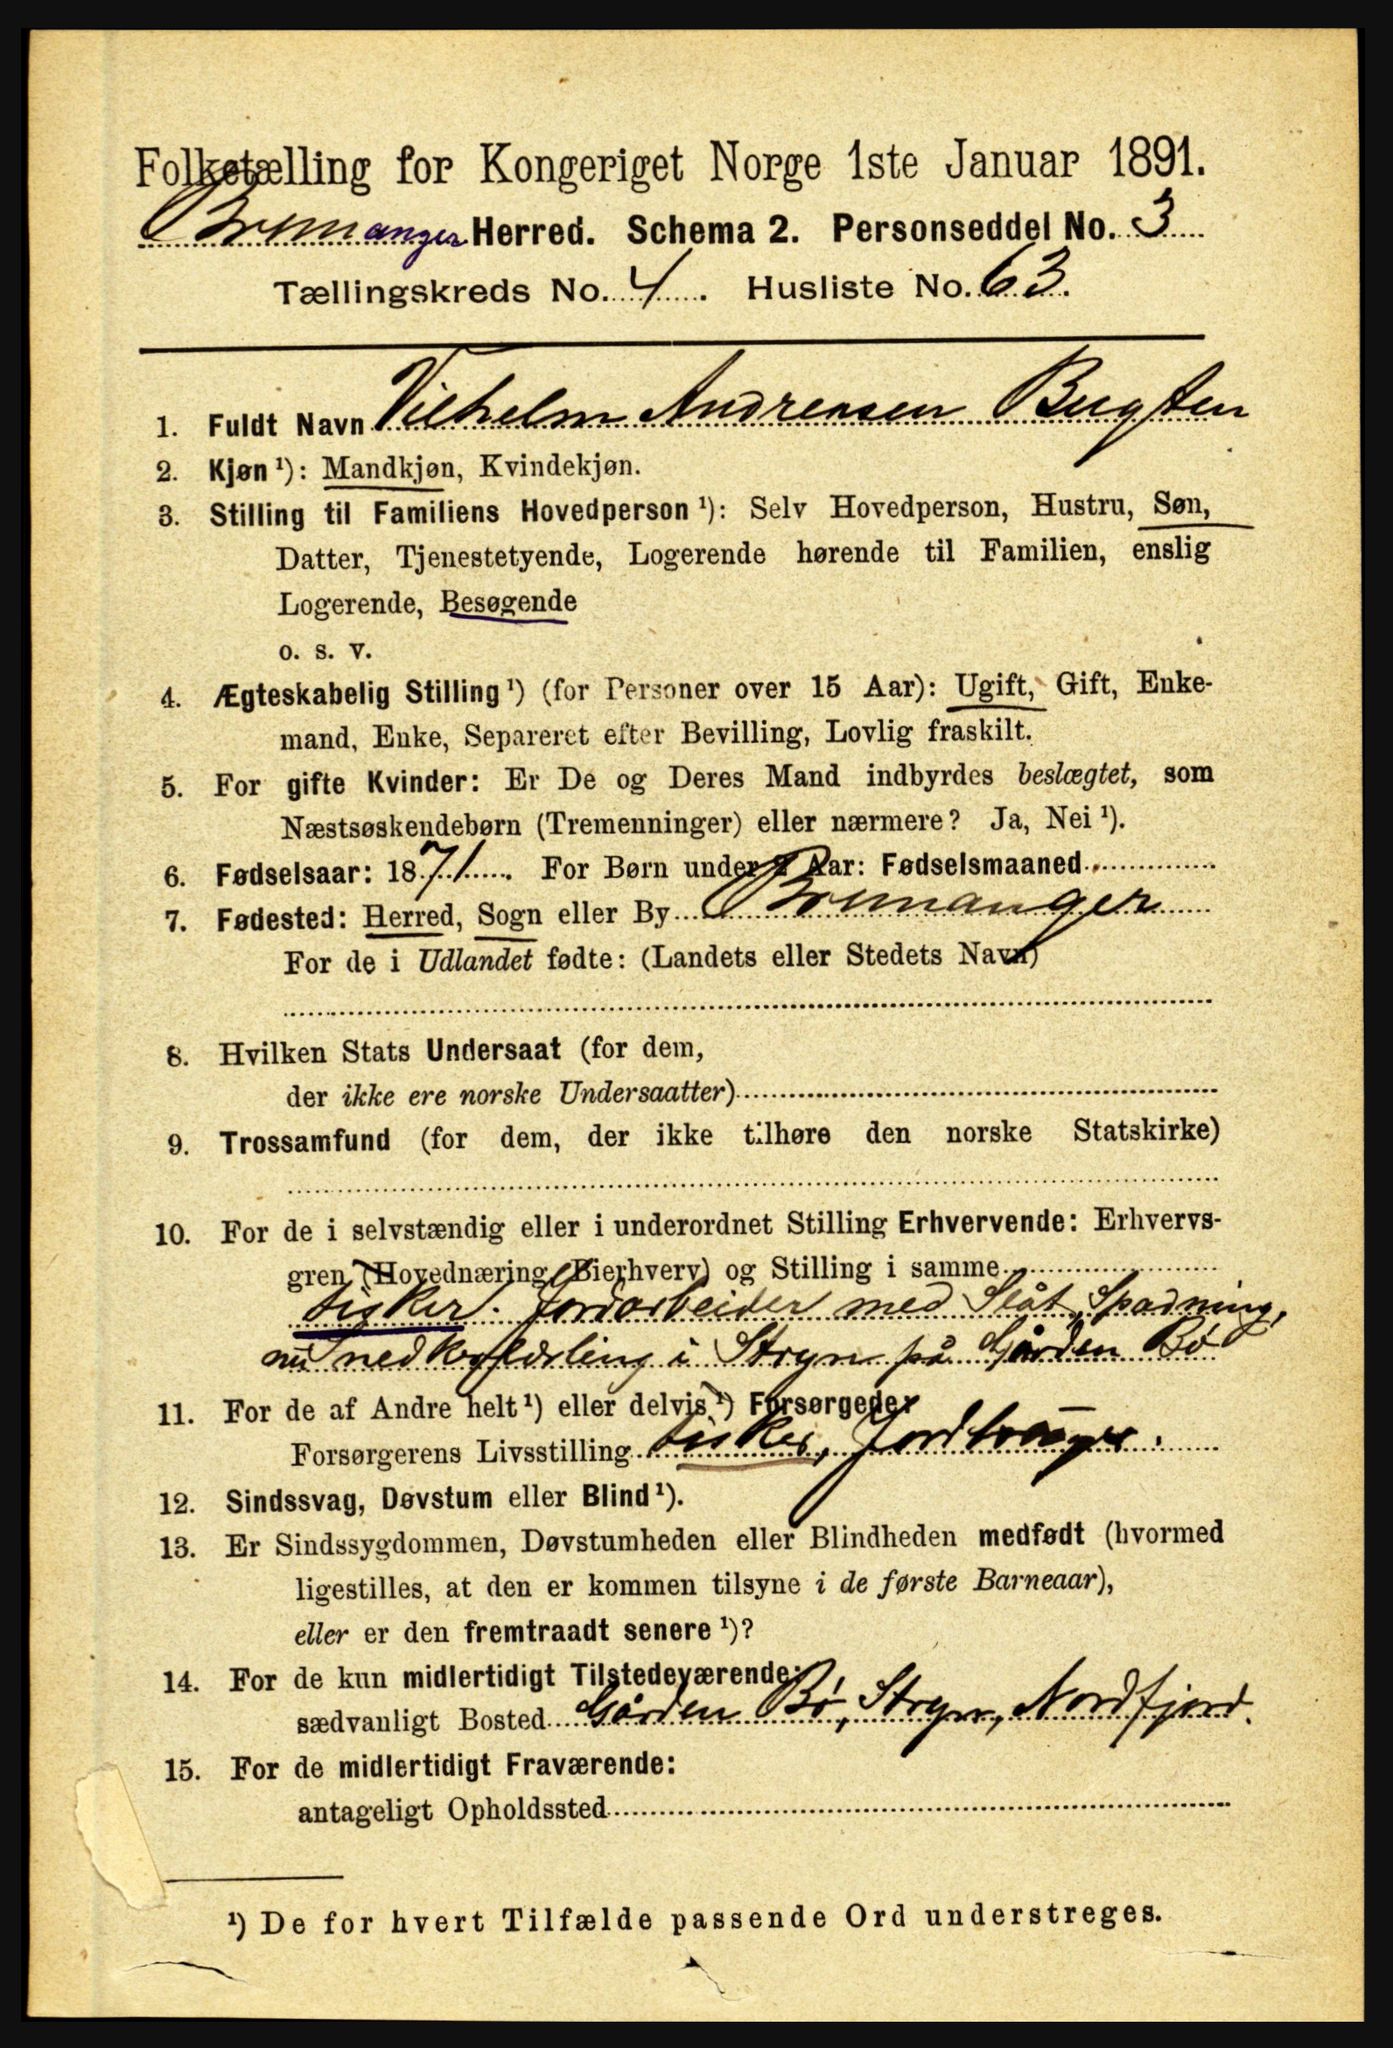 Folketælling for Kongeriget Norge 1ste Januar 1891.
Bremanger Herred. Schema 2. Personseddel No. 3
Tællingskreds No. 4. Husliste No. 63.
1. Fuldt Navn Vilhelm Andreasen Bugten
2. Kjøn ¹): Mandkjøn, Kvindekjøn.
3. Stilling til Familiens Hovedperson ¹): Selv Hovedperson, Hustru, Søn,
Datter, Tjenestetyende, Logerende hørende til Familien, enslig
Logerende, Besøgende
o. s. v.
4. Ægteskabelig Stilling ¹) (for Personer over 15 Aar): Ugift, Gift, Enke-
mand, Enke, Separeret efter Bevilling, Lovlig fraskilt.
5. For gifte Kvinder: Er De og Deres Mand indbyrdes beslægtet, som
Næstsøskendebørn (Tremenninger) eller nærmere? Ja, Nei ¹).
6. Fødselsaar: 1871. For Børn under 2 Aar: Fødselsmaaned
7. Fødested: Herred, Sogn eller By Bremanger
For de i Udlandet fødte: (Landets eller Stedets Navn)
8. Hvilken Stats Undersaat (for dem,
der ikke ere norske Undersaatter)
9. Trossamfund (for dem, der ikke tilhøre den norske Statskirke)
10. For de i selvstændig eller i underordnet Stilling Erhvervende: Erhvervs-
gren (Hovednæring, Bierhverv) og Stilling i samme
Fisker. Jordarbeider med Slåt, Spadning,
nu i Stryn på Gården Bø
11. For de af Andre helt ¹) eller delvis ¹) Forsørgede:
Forsørgerens Livsstilling Fisker, Jordbruger.
12. Sindssvag, Døvstum eller Blind ¹).
13. Er Sindssygdommen, Døvstumheden eller Blindheden medfødt (hvormed
ligestilles, at den er kommen tilsyne i de første Barneaar),
eller er den fremtraadt senere ¹)?
14. For de kun midlertidigt Tilstedeværende:
sædvanligt Bosted Gården Bø, Stryn, Nordfjord.
15. For de midlertidigt Fraværende:
antageligt Opholdssted
¹) De for hvert Tilfælde passende Ord understreges.